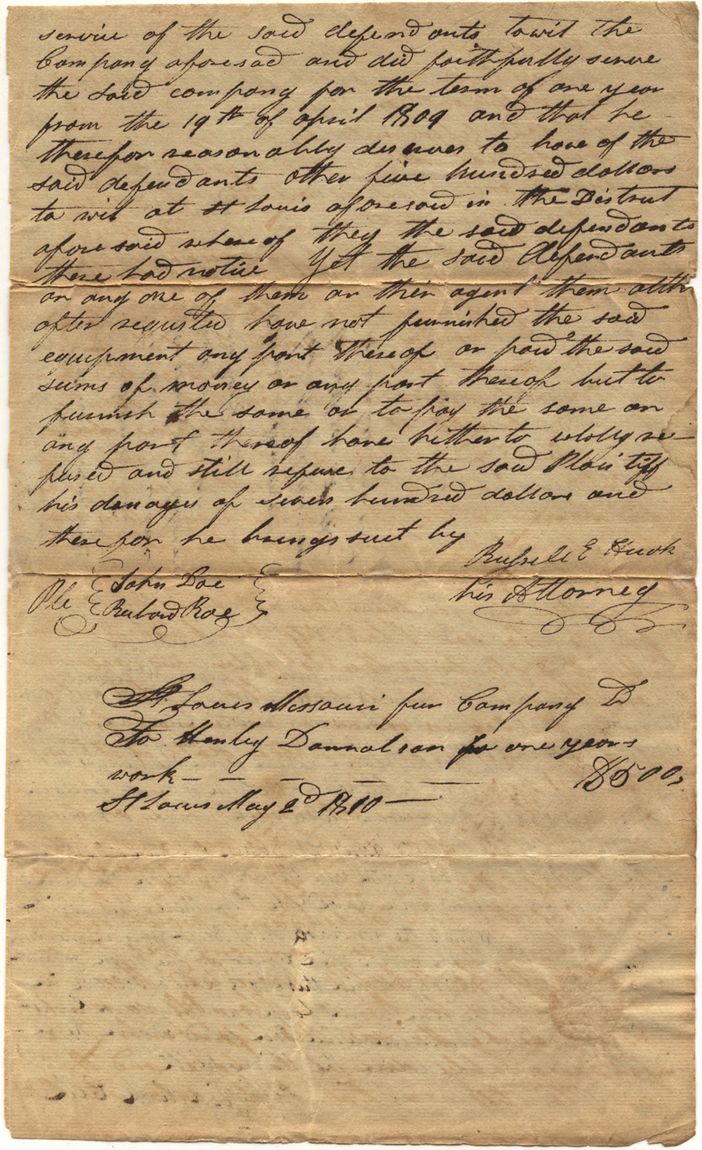 service of the said defendants towit the
Company aforesad and did faithfully serve
the said company for the term of one year
from the 19th of april 1809 and that he
therefor reasonably deserves to have of the
said defendants other five hundred dollars
to wit at St Louis aforesaid in the District
aforesaid whereof they the said defendants
there had notice Yet the said defendants
or any one of them or their agent them altho
often requisted have not furnished the said
equipment any part thereof or paid the said
sums of money or any part thereof but to
furnish the same or to pay the same or
any part thereof have hitherto wholy re-
fused and still refuse to the said Plaintiff
his damages of seven hundred dollars and
therefor he brings suit by
Russell E Hicok
his Attorney
Ple John Doe
Richard Roe
St Louis Missouri fur Company Dr
To Henley Donnalson for one years
work - - - - - $500,
St Louis May 2d 1810 -